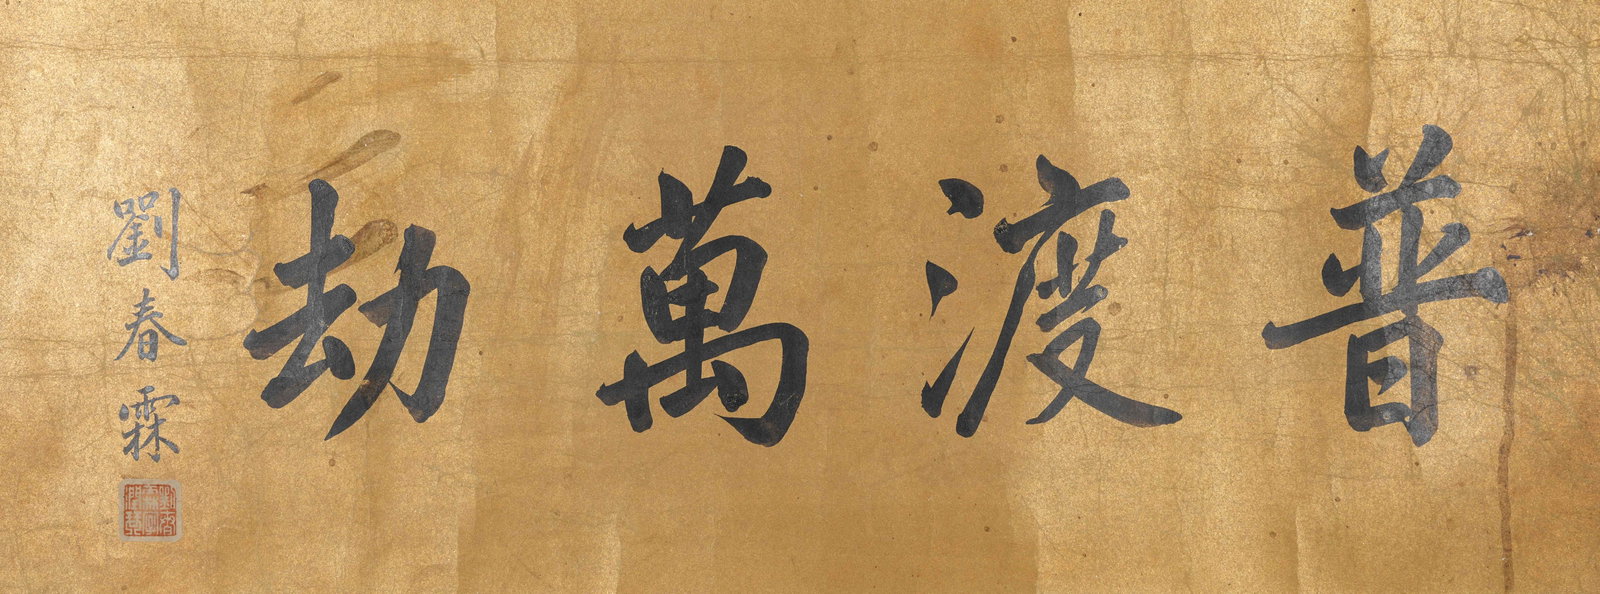 普渡萬劫
劉春霖